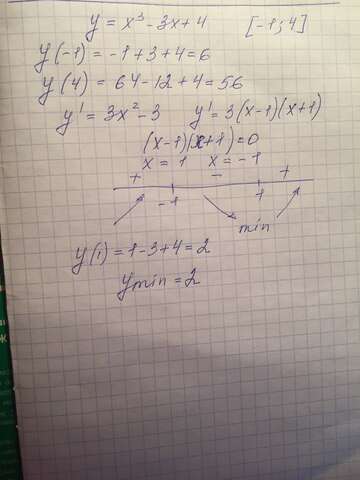 y = x³ - 3x + 4 [-1; 4]
y(-1) = -1 + 3 + 4 = 6
y(4) = 64 - 12 + 4 = 56
y' = 3x² - 3 y' = 3(x-1)(x+1)
(x-1)(x+1) = 0
x = 1 x = -1
+ - +
-1 1
min
y(1) = 1 - 3 + 4 = 2
ymin = 2